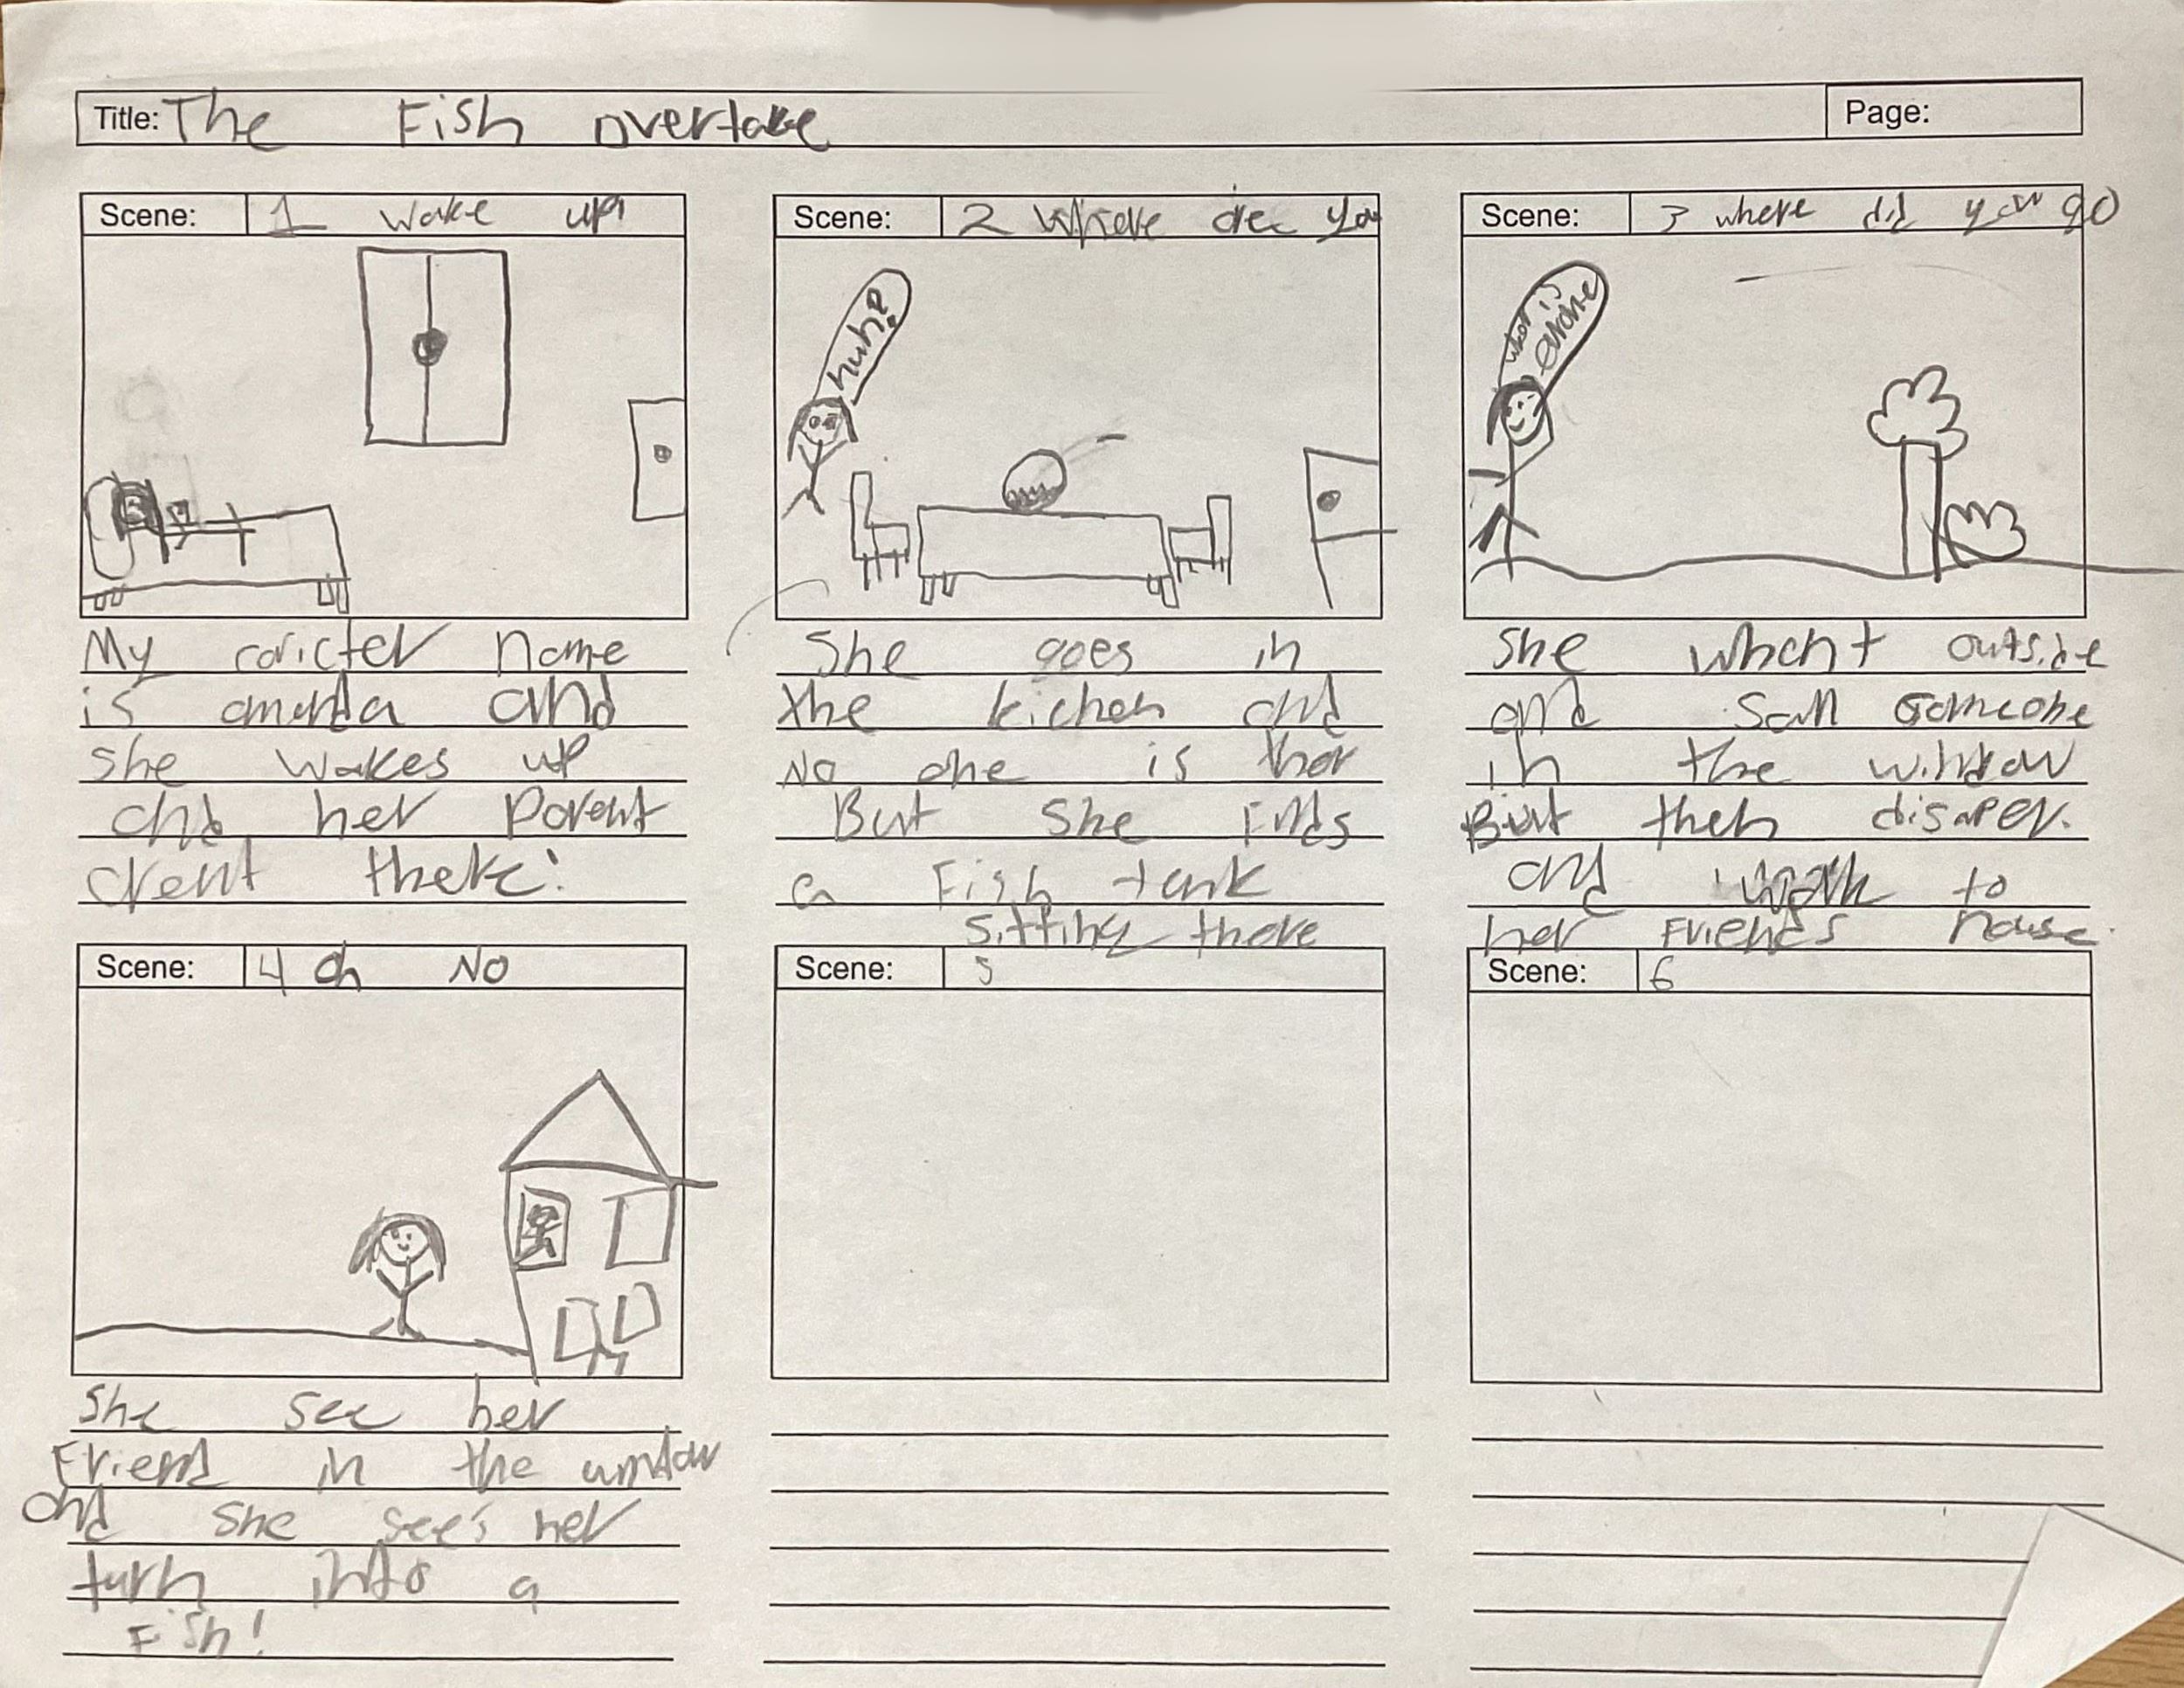 Title: The Fish overtake
Page:
Scene: 1 wake up
My caricter name
is amenda and
she wakes up
and her Parent
arent there.
Scene: 2 Where are you
huh?
She goes in
the kichen and
No one is ther
But she finds
a Fish tank
sitting there
Scene: 3 where did you go
is
she whent outside
and saw someone
in the window
But then disaper.
and walk to
her Friends house.
Scene: 4 oh NO
She see her
Friend in the window
and she see's her
turn into a
Fish!
Scene: 5
Scene: 6